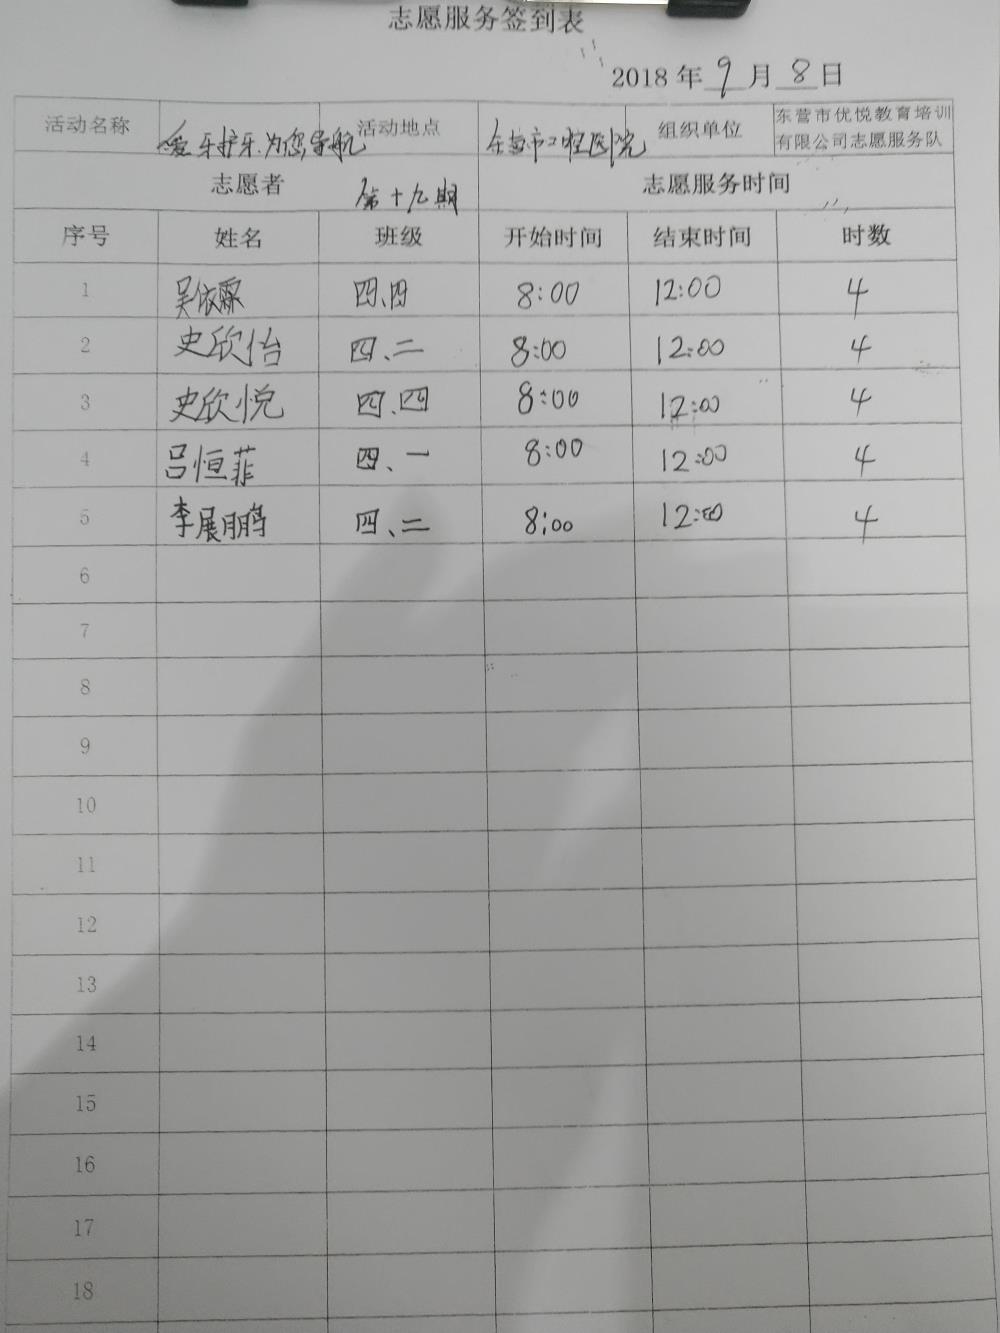 志愿服务签到表
2018 年 9 月 8 日
活动名称 爱牙护牙.为您导航 活动地点 东营市口腔医院 组织单位 东营市优悦教育培训
有限公司志愿服务队
志愿者 第十九期 志愿服务时间
序号 姓名 班级 开始时间 结束时间 时数
1 吴依霖 四、四 8:00 12:00 4
2 史欣怡 四、二 8:00 12:00 4
3 史欣悦 四、四 8:00 12:00 4
4 吕恒菲 四、一 8:00 12:00 4
5 李展鹏 四、二 8:00 12:00 4
6
7
8
9
10
11
12
13
14
15
16
17
18